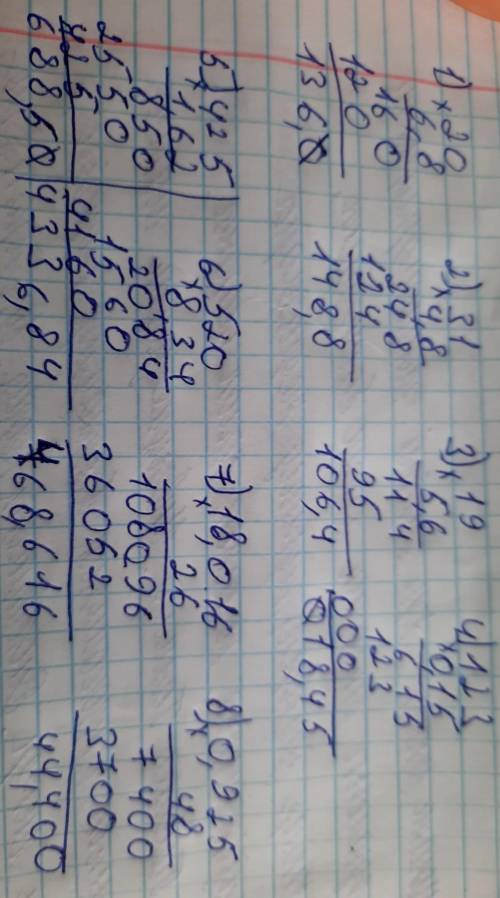 1) 20
× 6,8
160
120
136,0
2) 31
× 4,8
248
124
148,8
3) 19
× 5,6
114
95
106,4
4) 123
× 0,15
615
123
000
018,45
5) 425
× 1,62
850
2550
425
688,50
6) 520
× 8,34
2084
1560
4160
4336,84
7) 18,016
× 26
108096
36052
468,616
8) 0,925
× 48
7400
3700
44,400